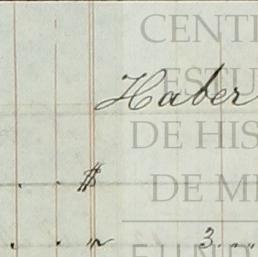 CENT
Haber
ESTU
DE HIS
DE M
. . $
. . " 3 . ..
FUND